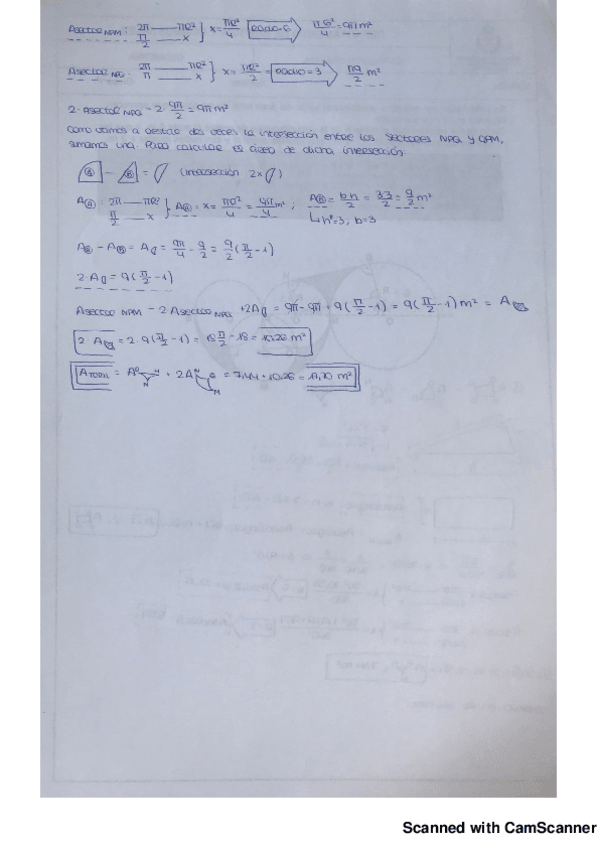 Asector NPM : 2π —— πR² } x = πR²/4 radio = 6 π6²/4 = 9π m²
π/2 —— x
Asector NPQ : 2π —— πR² } x = πR²/2 = radio = 3 π9/2 m²
π —— x
2 · Asector NPQ = 2 · 9π/2 = 9π m²
Como vamos a restar dos veces la intersección entre los sectores NPQ y QPM,
sumamos una. Para calcular el área de dicha intersección:
(intersección 2x)
2π —— πR² } x = πR²/4 = 9π/4 m² ; = b·h/2 = 3·3/2 = 9/2 m²
π/2 —— x h = 3, b = 3
= 9π/4 - 9/2 = 9/2 (π/2 - 1)
2 · A = 9 (π/2 - 1)
Asector NPM - 2 Asector NPQ + 2A = 9π - 9π + 9(π/2 - 1) = 9(π/2 - 1) m² = A
2 · A = 2 · 9(π/2 - 1) = 18 π/2 - 18 = 10.26 m²
ATOTAL = + 2A = 7,44 + 10.26 = 17,70 m²
Scanned with CamScanner